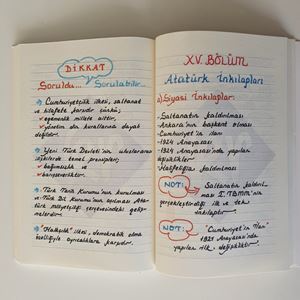 DİKKAT
Soruldu... Sorulabilir...
Cumhuriyetçilik ilkesi, saltanat
ve hilafete karşıdır çünkü;
egemenlik millete aittir,
yönetim de kurallarında dayat
değildir.
Yeni Türk Devleti'nin uluslararası
ilişkilerde temel prensipleri;
bağımsızlık ve
barışseverliktir.
Türk Tarih Kurumu'nun kurulması
ve Türk Dil Kurumu'nun açılması Ata-
türk milliyetçiliği çerçevesindeki geliş-
melerdir.
"Halkçılık" ilkesi, demokratik olma
özelliğiyle ayrıcalıklara karşıdır.
XV. Bölüm
Atatürk İnkılapları
a) Siyasi İnkılaplar:
- Saltanatın kaldırılması
- Ankara'nın başkent olması
- Cumhuriyet'in ilanı
- 1924 Anayasası
- 1924 Anayasası'nda yapılan
değişiklikler
- Halifeliğin kaldırılması
NOT: Saltanatın kaldırıl-
ması I. TBMM'nin
gerçekleştirdiği ilk ve tek
inkılaptır.
NOT: "Cumhuriyet'in İlanı"
1921 Anayasası'nda
yapılan ilk değişikliktir.